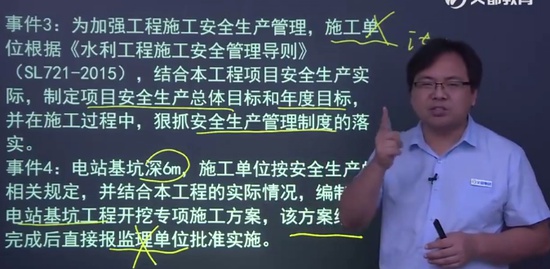 文都教育
事件3：为加强工程施工安全生产管理，施工单
位根据《水利工程施工安全管理导则》
（SL721-2015），结合本工程项目安全生产实
际，制定项目安全生产总体目标和年度目标，
并在施工过程中，狠抓安全生产管理制度的落
实。
事件4：电站基坑深6m，施工单位按安全生产
相关规定，并结合本工程的实际情况，编制
电站基坑工程开挖专项施工方案，该方案
完成后直接报监理单位批准实施。